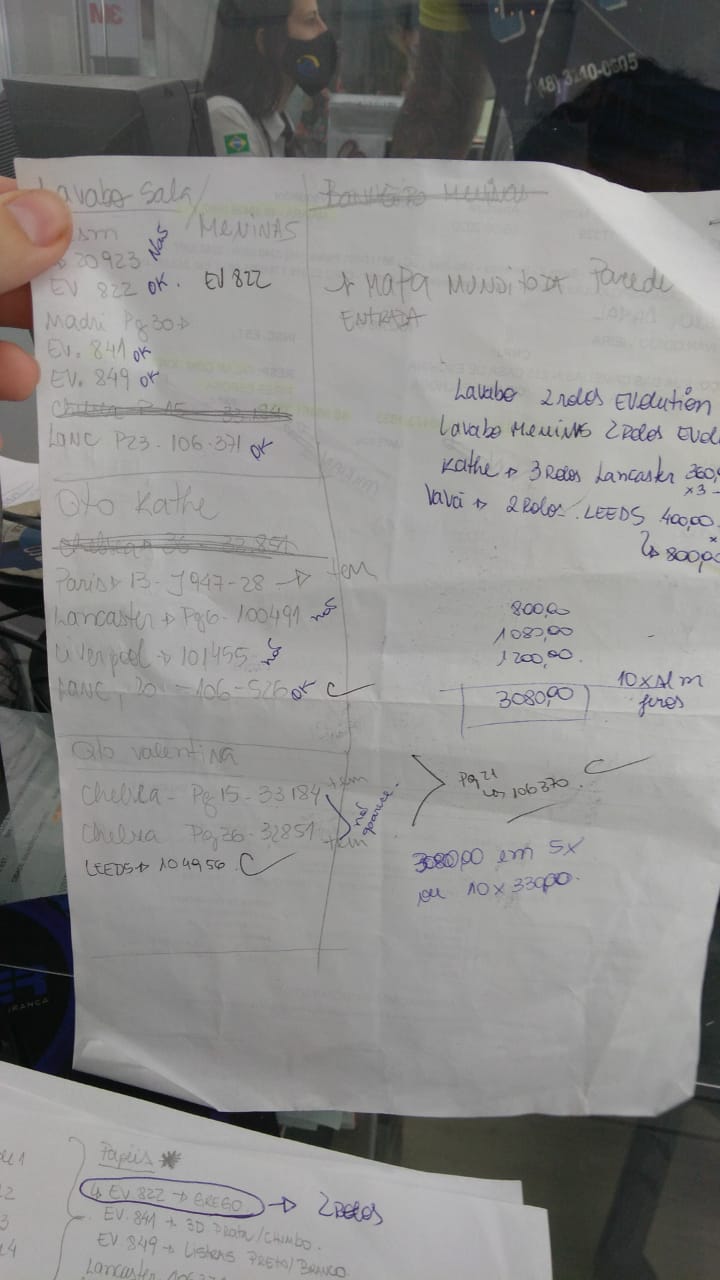 3M
(18) 3210-0505
Lavabo Sala / MENINAS
20923 Não
EV 822 OK. EV 822
Madri Pg 30
EV. 841 OK
EV. 849 OK
Chelsea P 15 33184
LANC P23 - 106-371 OK
Qto Kathe
Chelsea 36 32.851
Paris → 13 - J947-28 → tem
Lancaster → Pg 6 - 100491 não
Liverpool → 101455 não
LANC, 20 - 106-526 OK
Qto valentina
Chelsea - Pg 15 - 33184 tem
Chelsea Pg 36 - 32851 tem
não
LEEDS → 104956
Banheiro Meninas
MAPA MUNDI TODA Parede
ENTRADA
Lavabo 2 rolos EVolution
Lavabo MENINAS 2 Rolos
Kathe → 3 Rolos Lancaster 360,
x3
Vavá → 2 Rolos. LEEDS 400,00
↳ 800,00
800,00
1080,00
1200,00
3080,00
10x
juros
Pg 21
↳ 106370
3080,00 em 5x
ou 10 x 330,00.
IRANGA
Papéis
↳ EV. 822 → GREGO → 2 Rolos
EV. 841 → 3D PRATA/CHUMBO.
EV 849 → Listras PRETO/BRANCO
Lancaster